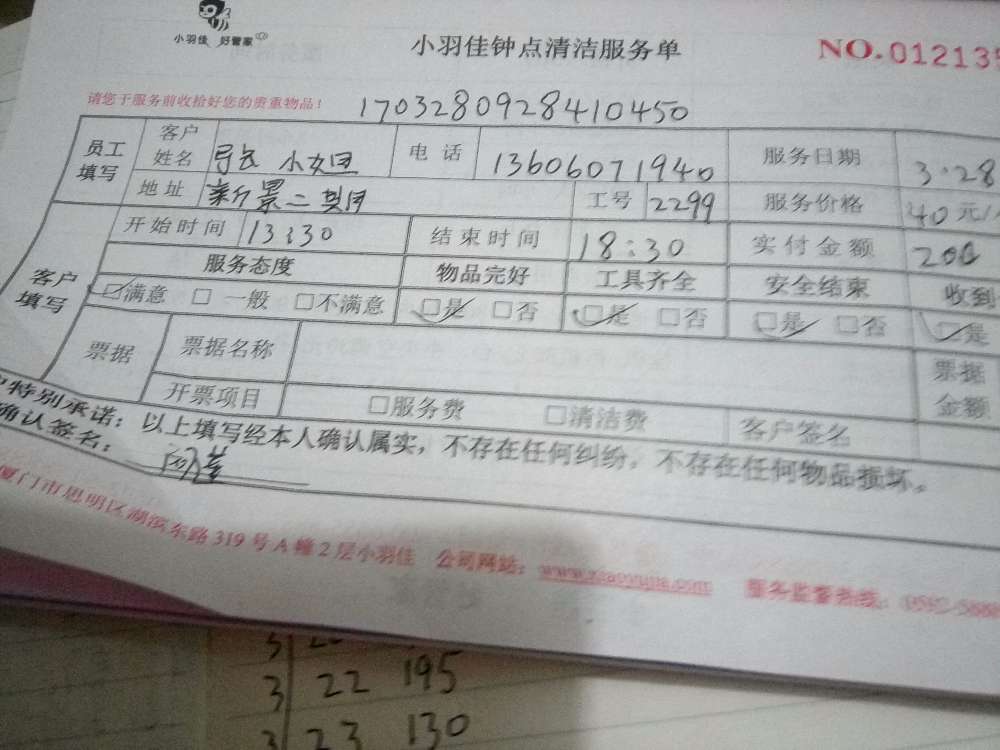 小羽佳 好管家
小羽佳钟点清洁服务单
NO.012135
请您于服务前收拾好您的贵重物品！
1703280928410450
员工填写
客户姓名
小姐
电话 13606071940
服务日期 3.28
地址
景二期
工号 2299
服务价格 40元/
客户填写
开始时间 13:30
结束时间 18:30
实付金额 200
服务态度
物品完好
工具齐全
安全结束
收到
☑满意 □一般 □不满意
☑是 □否
☑是 □否
☑是 □否
☑是
票据
票据名称
票据金额
开票项目
□服务费 □清洁费
客户签名
特别承诺：以上填写经本人确认属实，不存在任何纠纷，不存在任何物品损坏。
确认签名：
厦门市思明区湖滨东路319号A幢2层小羽佳 公司网站：www.xiaoyujia.com 服务监督热线：0592-5888
3 22 195
3 23 130